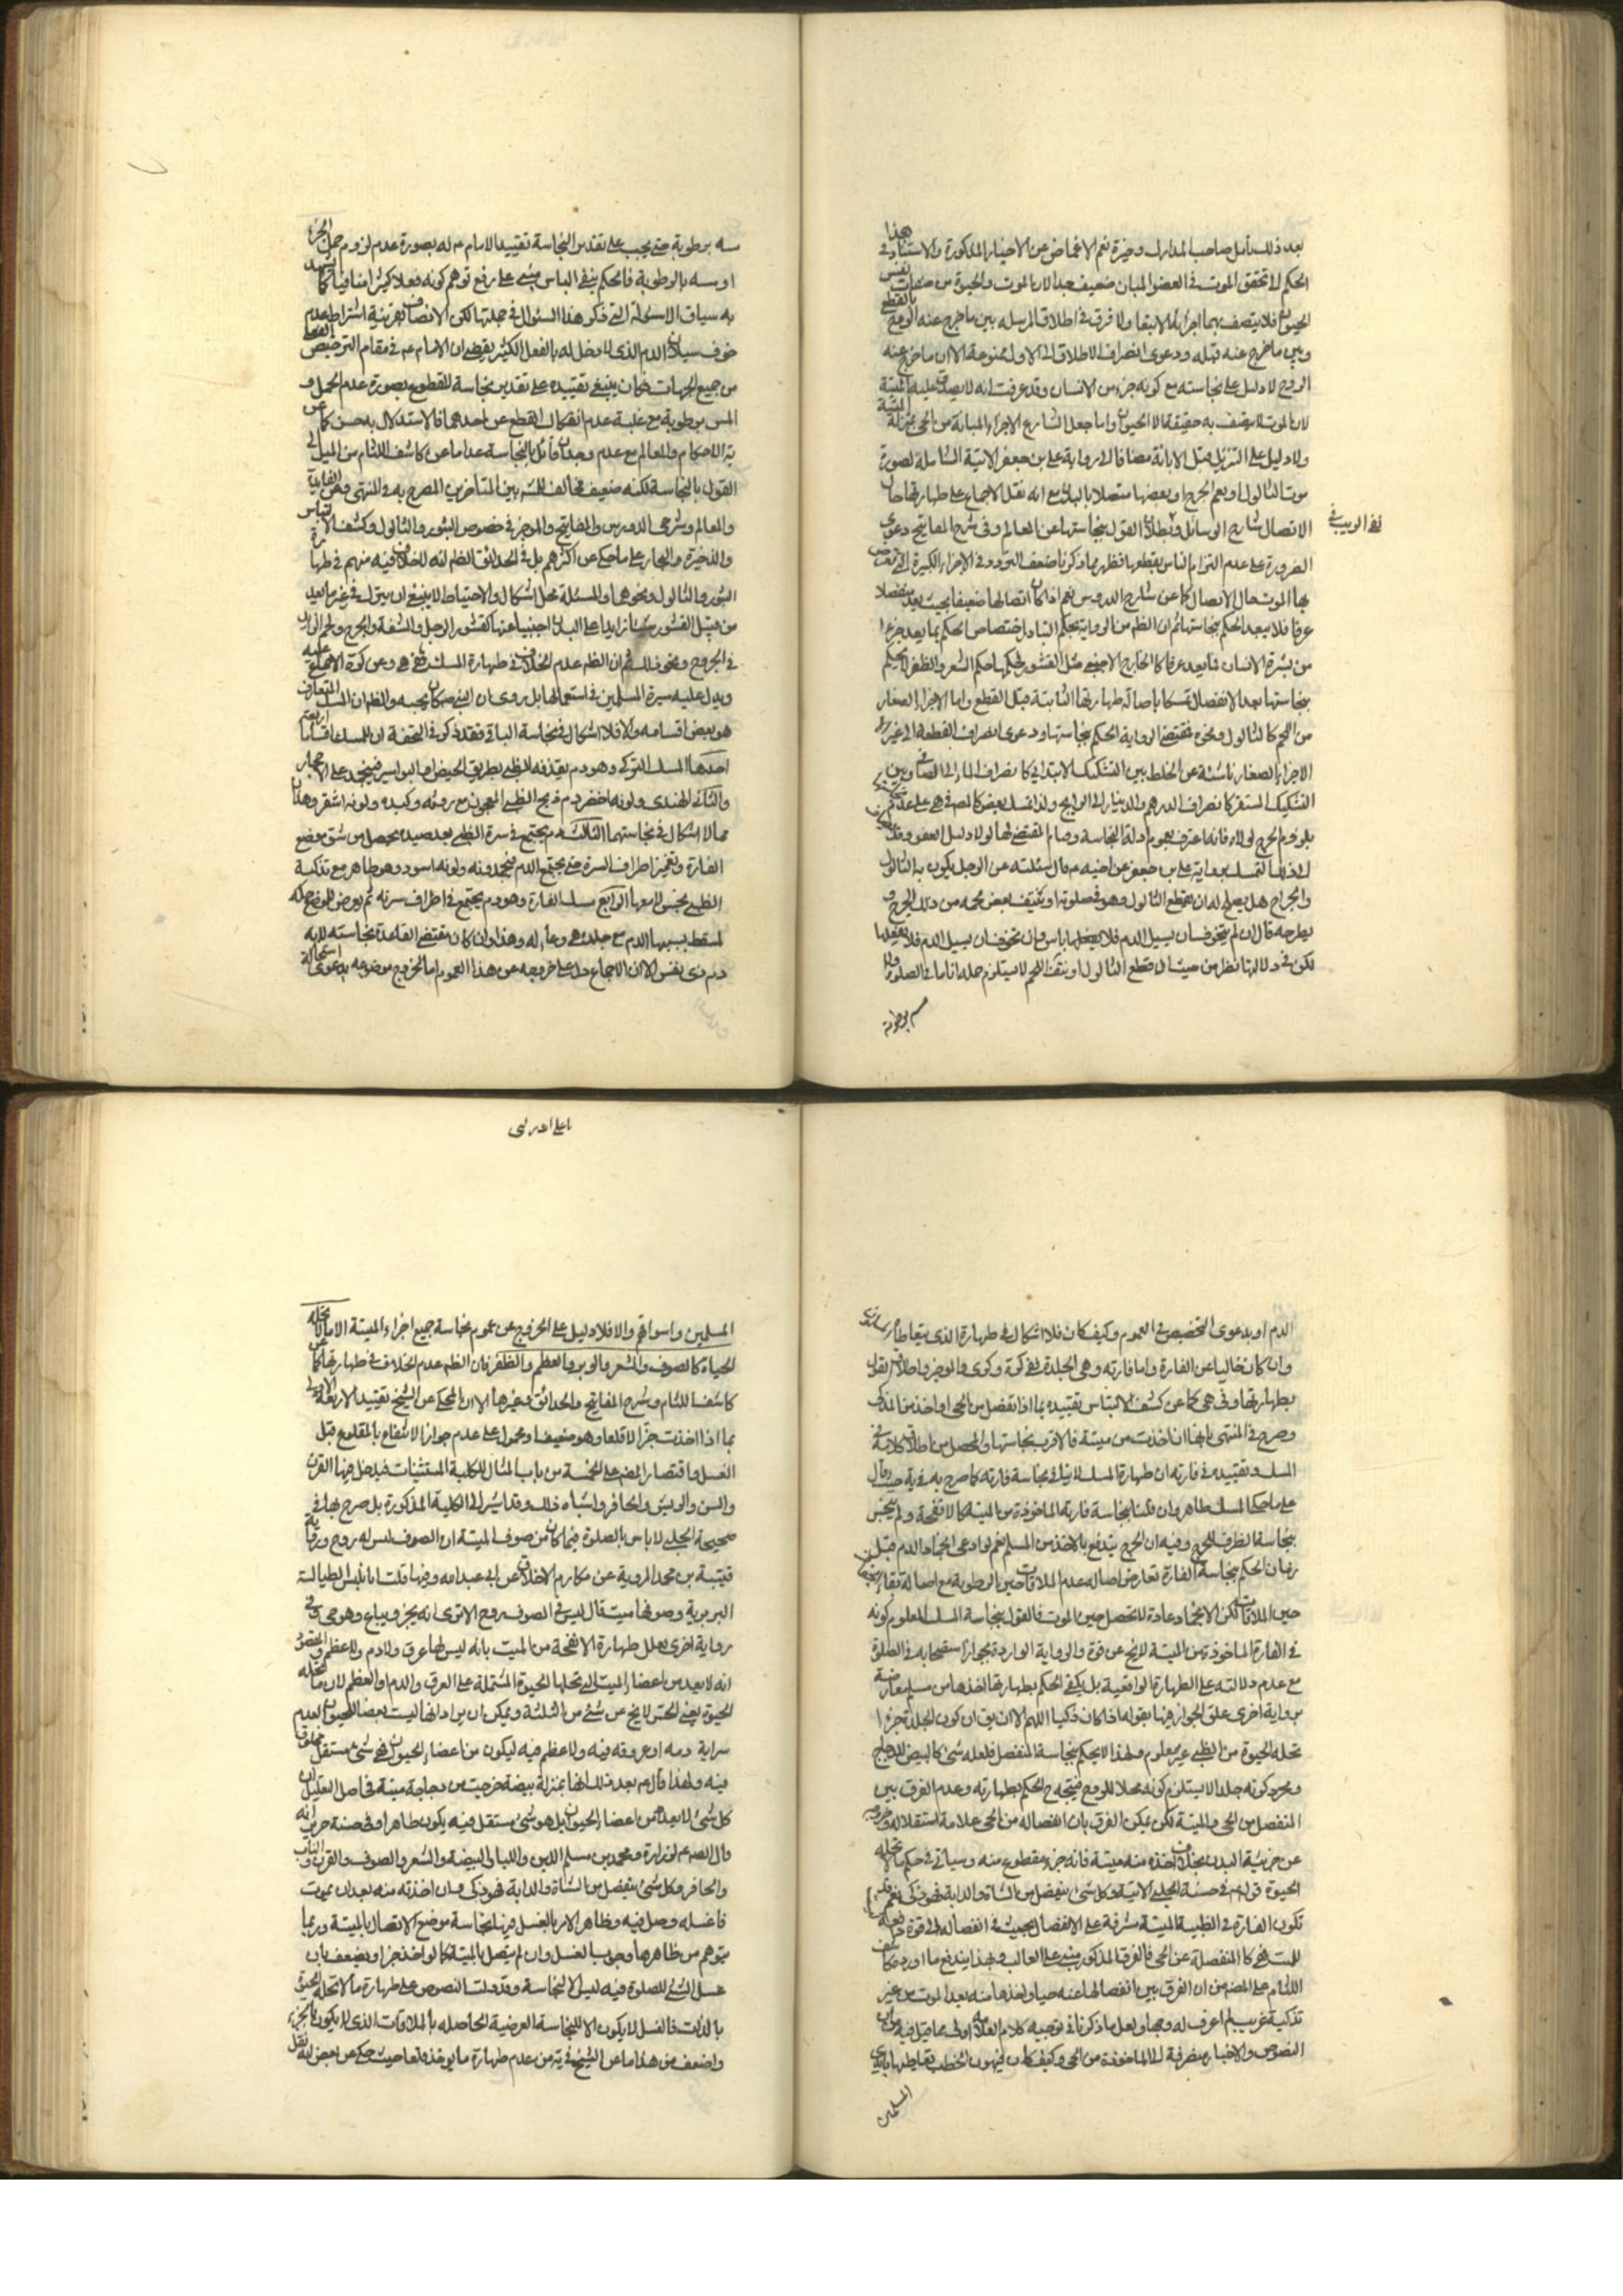 بعد ذلك تأمل صاحب المدارك وخيرة نعم الاغماض عن الاخبار المذكورة والاستناد في هذا
الحكم الى تحقق الموت في العضو المبان ضعيف جدا لان الموت والحيوة من صفات نفس
الحيوان فلا يتصف بهما اجزاؤه الا تبعا ولا فرق في اطلاق المرسله بين ما خرج عنه الروح بالقطع
وبين ما خرج عنه قبله ودعوى انصراف الاطلاق الى الاول ممنوعة الا ان ما خرج عنه
الروح لا دليل على نجاسته مع كونه جزء من الانسان وقد عرفت انه لا يصدق عليه الميتة
لان الموت لا يتصف به حقيقة الا الحيوان وانما جعل الشارع الاجزاء المبانة من الحي بمنزلة الميتة
ولا دليل على التنزيل قبل الابانة مضافا الى رواية علي بن جعفر الاتية الشاملة لصورة
موت الثالول او بعم الجرح او بعضها متصلا بالبدن مع انه نقل الاجماع على طهارتها حال
الاتصال شارح الوسائل وبطلان القول بنجاستها عن المعالم وفي شرح المفاتيح دعوى
نفي الريب في
الضرورة على عدم التزام الناس بقطعها فظهر مما ذكرنا ضعف التردد في الاجزاء الكبيرة التي
بها الموت حال الاتصال كما عن شارح الدروس نعم اذا كان اتصالها ضعيفا بحيث يعد منفصلا
عرفا فلا يبعد الحكم بنجاستها ثم ان الظم من الرواية بحكم التبادل اختصاص الحكم بما يعد جزءا
من بشرة الانسان فما يعد عرفا كالخارج الاجنبي مثل القشور فحكمها حكم الشعر والظفر لا يحكم
بنجاستها بعد الانفصال تمسكا باصالة طهارتها الثابتة قبل القطع واما الاجزاء الصغار
من اللحم كالثالول ونحوه فمقتضى الرواية الحكم بنجاستها ودعوى انصراف القطعة الى غير
الاجزاء الصغار ناشئة عن الخلط بين التشكيك الابتدائي كانصراف الماء الى الصافي وبين
التشكيك المستقر كانصراف الدرهم والدينار الى الرايج ولذا تمسك بعض
بلزوم الحرج لولاه فانه اعترف بعموم ادلة النجاسة وصار المقتضي لها لولا دليل العفو
لذلك التمسك برواية علي بن جعفر عن اخيه م قال سئلته عن الرجل يكون به الثالول
والجراح هل يصلح له ان يقطع الثالول وهو في صلوته او ينتف بعض لحمه من ذلك الجرح و
يطرحه قال ان لم يتخوف ان يسيل الدم فلا باس وان تخوف ان يسيل الدم فلا يفعله
لكن في دلالتها نظر من حيث ان قطع الثالول او نتف اللحم لا يستلزم حمله اناما في الصلوة
مسه برطوبة
سه برطوبة حتى يجب على تقدير النجاسة تقييد الامام م له بصورة عدم لزوم حمل الجزء
او مسه بالرطوبة فالحكم بنفي الباس مبني على رفع توهم كونه فعلا كثيرا منافيا كما يشهد
به سياق الاسئلة التي ذكر هذا السئوال في جملتها لكن الانصاف قرينة اشتراط عدم
خوف سيلان الدم الذي لا دخل له بالفعل الكثير يقضي ان الامام عم في مقام الترخيص
من جميع الجهات فكان ينبغي تقييده على تقدير نجاسة المقطوع بصورة عدم الحمل و
المس برطوبة مع غلبة عدم انفكاك القطع عن احدهما فالاستدلال به حسن كما عن
ية الاحكام والمعالم مع عدم وجدان قائل بالنجاسة عدا ما عن كاشف اللثام من الميل الى
القول بالنجاسة لكنه ضعيف مخالف للمشهور بين المتاخرين المصرح به في المنتهى
والمعالم وشرحي الدروس والمفاتيح والموجز في خصوص البثور والثالول وكشف الالتباس
والذخيرة والبحار على ما حكي عن اكثرهم بل في الحدائق الظم انه لا خلاف فيه منهم في طهارة
البثور والثالول ونحوهما والمسئلة محل اشكال والاحتياط لا ينبغي ان يترك في غير ما يعد
من قبيل القشور شيئا زايدا على البدن اجنبيا عنها كقشور الرجل والشفة والجرح
في الجروح ونحو ذلك ثم ان الظم عدم الخلاف في طهارة المسك
ويدل عليه سيرة المسلمين في استعمالها بل روي ان النبي ص كان يحبه والظم ان المسك المتعارف
هو بعض اقسامه والا فلا اشكال في نجاسة الباقي فقد ذكر في التحفة ان للمسك اقساما اربعة
احدها المسك التركي وهو دم يقذفه الظبي بطريق الحيض او البواسير فينجمد على الاحجار
والثاني الهندي ولونه اخضر دم ذبح الظبي المعجون مع روثه وكبده ولونه اشقر وهذان
مما لا اشكال في نجاستهما الثالث دم يجتمع في سرة الظبي بعد صيده يحصل من شق موضع
الفارة وتغميز اطراف السرة حتى يجتمع الدم فيجمد ولونه اسود وهو طاهر مع تذكية
الظبي نجس لا معها الرابع مسك الفارة وهو دم يجتمع في اطراف سرته ثم يعرض للموضع حكة
تسقط بسببها الدم مع جلده هي وعاء له وهذا وان كان مقتضى القاعدة نجاسته لانه
دم ذي نفس الا ان الاجماع دل على خروجه عن هذا العموم اما لخروج موضوعه بدعوى استحالة
الدم او بدعوى التخصيص في العموم وكيف كان فلا اشكال في طهارة الذي يتعاطاه
وان كان خاليا عن الفارة واما فارته وهي الجلدة ففي كرة وكرى والموجز واطلاق القول
بطهارتها وفي هي كما عن كشف الالتباس تقييده بما اذا انفصل من الحي او اخذ من المذكى
وصرح في المنتهى بانها ان اخذت من ميتة فالاقرب نجاستها والمحصل من اطلاق كلامه في
المسك وتقييده في فارته ان طهارة المسك لا ينافي نجاسة فارته كما صرح به في ية حيث قال
على ما حكي المسك طاهر وان قلنا بنجاسة فارته الماخوذة من الميتة كالانفحة ولم ينجس
بنجاسة الظرف للحرج وفيه ان الحرج يندفع بالاخذ من المسلم نعم لو ادعى انجماد الدم قبل
زمان الحكم بنجاسة الفارة تعارض اصالة عدم الملاقات حين الرطوبة مع اصالة بقاء
حين الملاقات لكن الانجماد عادة لا يحصل حين الموت فالقول بنجاسة المسك المعلوم كونه
في الفارة الماخوذة من الميتة لا يخ عن قوة والرواية الواردة بجواز استصحابه في الصلوة
مع عدم دلالته على الطهارة الواقعية بل يكفي الحكم بطهارتها اخذها من مسلم معارضة
برواية اخرى علق الجواز فيها بقوله اذا كان ذكيا اللهم الا ان يق ان كون الجلدة جزءا
تحله الحيوة من الظبي غير معلوم ولهذا لا يحكم بنجاسة المنفصل فلعله شئ كالبيض للدجاج
ومجرد كونه جلدا لا يستلزم كونه محلا للروح فيتجه ح الحكم بطهارته وعدم الفرق بين
المنفصل من الحي والميتة لكن يمكن الفرق بان انفصاله من الحي علامة استقلاله وخروجه
عن جزئية البدن بخلاف اخذه منه ميتة فانه جزء مقطوع منه وسياتي في حكم ما لا تحله
الحيوة قوله م في حسنة الحلبي الاتية وكل شئ ينفصل من الشاة والدابة فهو ذكي نعم قد
تكون الفارة في الظبية الميتة مشرفة على الانفصال بحيث في انفصاله الى قوة دافعة
للميتة فهي كالمنفصلة عن الحي فالفرق المذكور مبني على الغالب وبهذا يندفع ما اورده كاشف
اللثام على المضم من ان الفرق بين انفصالها عنه حيا واخذها منه بعد الموت من غير
تذكية غريب لم اعرف له وجها ولعل ما ذكرنا في توجيه كلام العلامة اولى مما قيل فيه من ان
النصوص والاخبار منصرفة الى الماخوذة من الحي وكيف كان فيهون الخطب تعاطيها بايدي
المسلمين
يا علي ادركني
المسلمين واسواقهم والا فلا دليل على الخروج عن عموم نجاسة جميع اجزاء الميتة الا ما لا تحله
الحياة كالصوف والشعر والوبر والعظم والظفر فان الظم عدم الخلاف في طهارتها كما عن
كاشف اللثام وشرح المفاتيح والحدائق وغيرها الا ان المحكي عن الشيخ تقييد الاربعة الاولى
بما اذا اخذت جزا لا قلعا وهو ضعيف او محمول على عدم جواز الانتفاع بالمقلوع قبل
الغسل واقتصار المضم على الخمسة من باب المثال للكلية المستثنيات فيدخل فيها القرن
والسن والريش والحافر واشباه ذلك وقد اشير الى الكلية المذكورة بل صرح بها في
صحيحة الحلبي لا باس بالصلوة فيما كان من صوف الميتة ان الصوف ليس له روح ورواية
قتيبة بن محمد المروية عن مكارم الاخلاق عن ابي عبد الله وفيها قلت انا نلبس الطيالسة
البربرية وصوفها ميت قال ليس في الصوف روح الا ترى انه يجز ويباع وهو حي وفي
رواية اخرى يعلل طهارة الانفحة من الميت بانه ليس لها عرق ولا دم ولا عظم والغرض
انه لا يعد من اعضاء الميت التي تحلها الحيوة المشتملة على العرق والدم او العظم لان ما تحله
الحيوة يعني الحس لا يخ من شئ من الثلثة ويمكن ان يراد انها ليست بعضا للحيوان لعدم
سراية دمه او عروقه فيه ولا عظم فيه ليكون من اعضاء الحيوان فهي شئ مستقل مخلوق
فيه ولهذا قال م بعد ذلك انها بمنزلة بيضة خرجت من دجاجة ميتة فحاصل التعليل ان
كل شئ لا يعد من اعضاء الحيوان بل هو شئ مستقل فيه يكون طاهرا وفي حسنة حريز انه
قال الصم عم لزرارة ومحمد بن مسلم اللبن واللبا والبيضة والشعر والصوف والقرن والناب
والحافر وكل شئ ينفصل من الشاة والدابة فهو ذكي وان اخذته منه بعد ان يموت
فاغسله وصل فيه وظاهر الامر بالغسل فيها لنجاسة موضع الاتصال بالميتة وربما
يتوهم من ظاهرها وجوب الغسل وان لم يتصل بالميتة كما لو اخذ جزا ويضعف بان
غسل الشئ للصلوة فيه ليس الا لنجاسة وقد دلت النصوص على طهارة ما لا تحله الحيوة
بالذات فالغسل لا يكون الا للنجاسة العرضية الحاصلة بالملاقات الذي لا يكون بالجز
واضعف من هذا ما عن الشيخ في ية من عدم طهارة ما يؤخذ قلعا حيث حكي عن بعض انه نقل